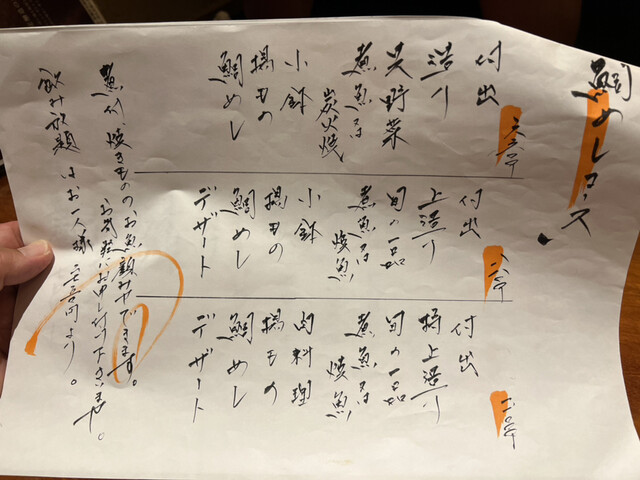 鯛めしコース
付出
造り
野菜
煮魚又は
炭火焼
小鉢
揚もの
鯛めし
付出
上造り
旬の一品
煮魚又は
焼魚
小鉢
揚もの
鯛めし
デザート
付出
特上造り
旬の一品
煮魚又は
焼魚
肉料理
揚もの
鯛めし
デザート
煮付、焼きもののお魚できます。
お気軽にお申し付け下さいませ。
飲み放題はお一人様円より。